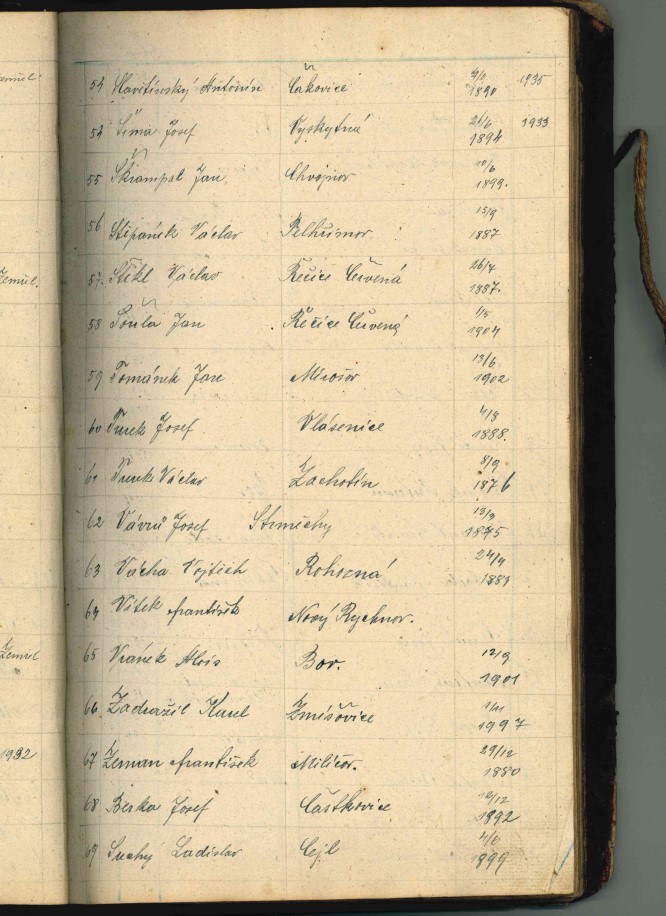 zemřel
53 Slavětínský Antonín Čakovice 1890 1935
54 Šíma Josef Vyskytná 26/6 1894 1933
55 Škrampal Jan Chvojnov 10/6 1899.
56. Štěpánek Václav Pelhřimov 15/9 1887
zemřel.
57. Štěkl Václav Řečice Červená 26/7 1887.
58 Šoula Jan Řečice Červená 1/5 1904
59 Tománek Jan Mirošov 13/6 1902
60 Turek Josef Vlásenice 4/3 1888.
61 Turek Václav Zachotín 8/9 1876
62 Vávrů Josef Strměchy 13/3 1875
63 Vácha Vojtěch Rohozná 24/4
64 Vítek František Nový Rychnov.
zemřel
65 Vránek Alois Bor. 12/9 1901
66 Zadražil Karel Zmišovice 1/11 1997
1932
67 Zeman František Miličov. 29/12 1880
68 Beska Josef Částkovice 10/12 1892
69 Suchý Ladislav Cejl 4/6 1899